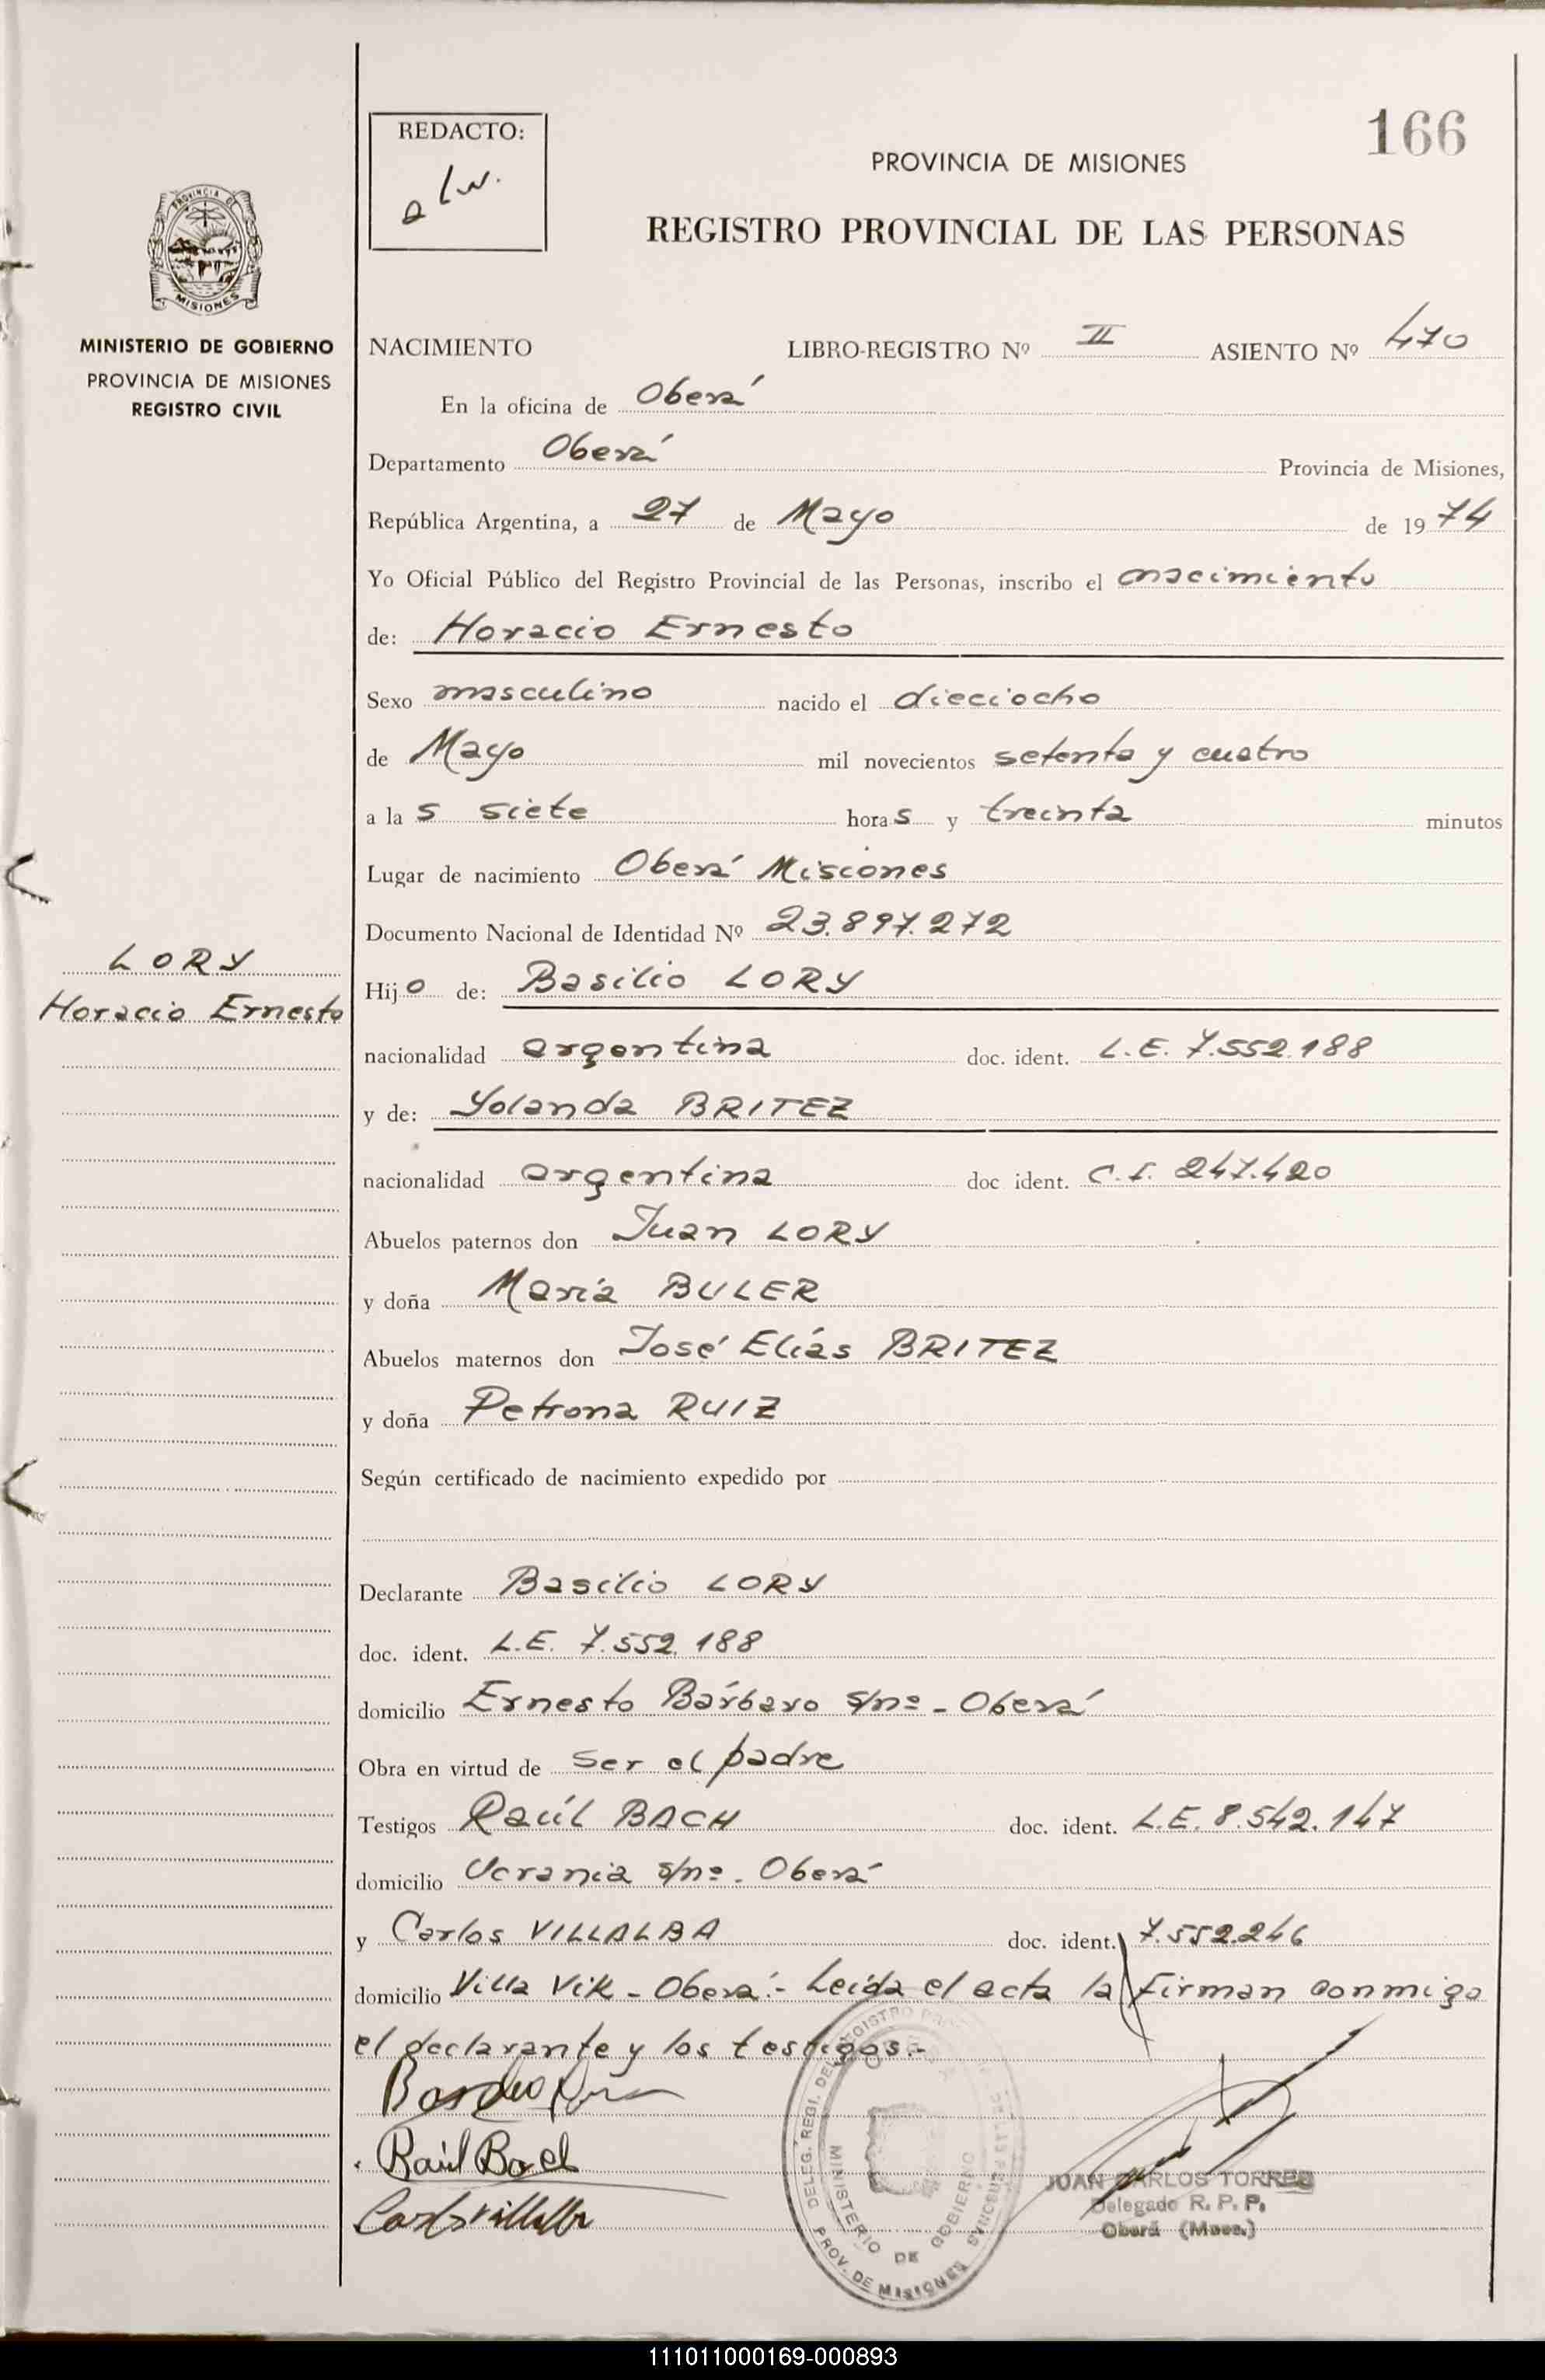 166
REDACTO:
PROVINCIA DE MISIONES
REGISTRO PROVINCIAL DE LAS PERSONAS
PROVINCIA DE
MISIONES
MINISTERIO DE GOBIERNO
PROVINCIA DE MISIONES
REGISTRO CIVIL
LORY
Horacio Ernesto
NACIMIENTO LIBRO-REGISTRO Nº II ASIENTO Nº 470
En la oficina de Oberá
Departamento Oberá Provincia de Misiones,
República Argentina, a 27 de Mayo de 1974
Yo Oficial Público del Registro Provincial de las Personas, inscribo el nacimiento
de: Horacio Ernesto
Sexo masculino nacido el dieciocho
de Mayo mil novecientos setenta y cuatro
a las siete horas y treinta minutos
Lugar de nacimiento Oberá Misiones
Documento Nacional de Identidad Nº 23.897.272
Hijo de: Basilio LORY
nacionalidad argentina doc. ident. L.E. 7.552.188
y de: Yolanda BRITEZ
nacionalidad argentina doc ident. C.I. 247.420
Abuelos paternos don Juan LORY
y doña María BULER
Abuelos maternos don José Elías BRITEZ
y doña Petrona RUIZ
Según certificado de nacimiento expedido por
Declarante Basilio LORY
doc. ident. L.E. 7.552.188
domicilio Ernesto Bárbaro s/nº - Oberá
Obra en virtud de ser el padre
Testigos Raúl BACH doc. ident. L.E. 8.542.147
domicilio Ucrania s/nº - Oberá
y Carlos VILLALBA doc. ident. 7.552.246
domicilio Villa Vik - Oberá.- Leída el acta la firman conmigo
el declarante y los testigos.-
Raúl Bach
JUAN CARLOS TORRES
Delegado R. P. P.
Oberá (Mnes.)
DELEG. REGI. DEL REGISTRO PROV. DE LAS PERSONAS
MINISTERIO DE GOBIERNO
PROV. DE MISIONES
111011000169-000893